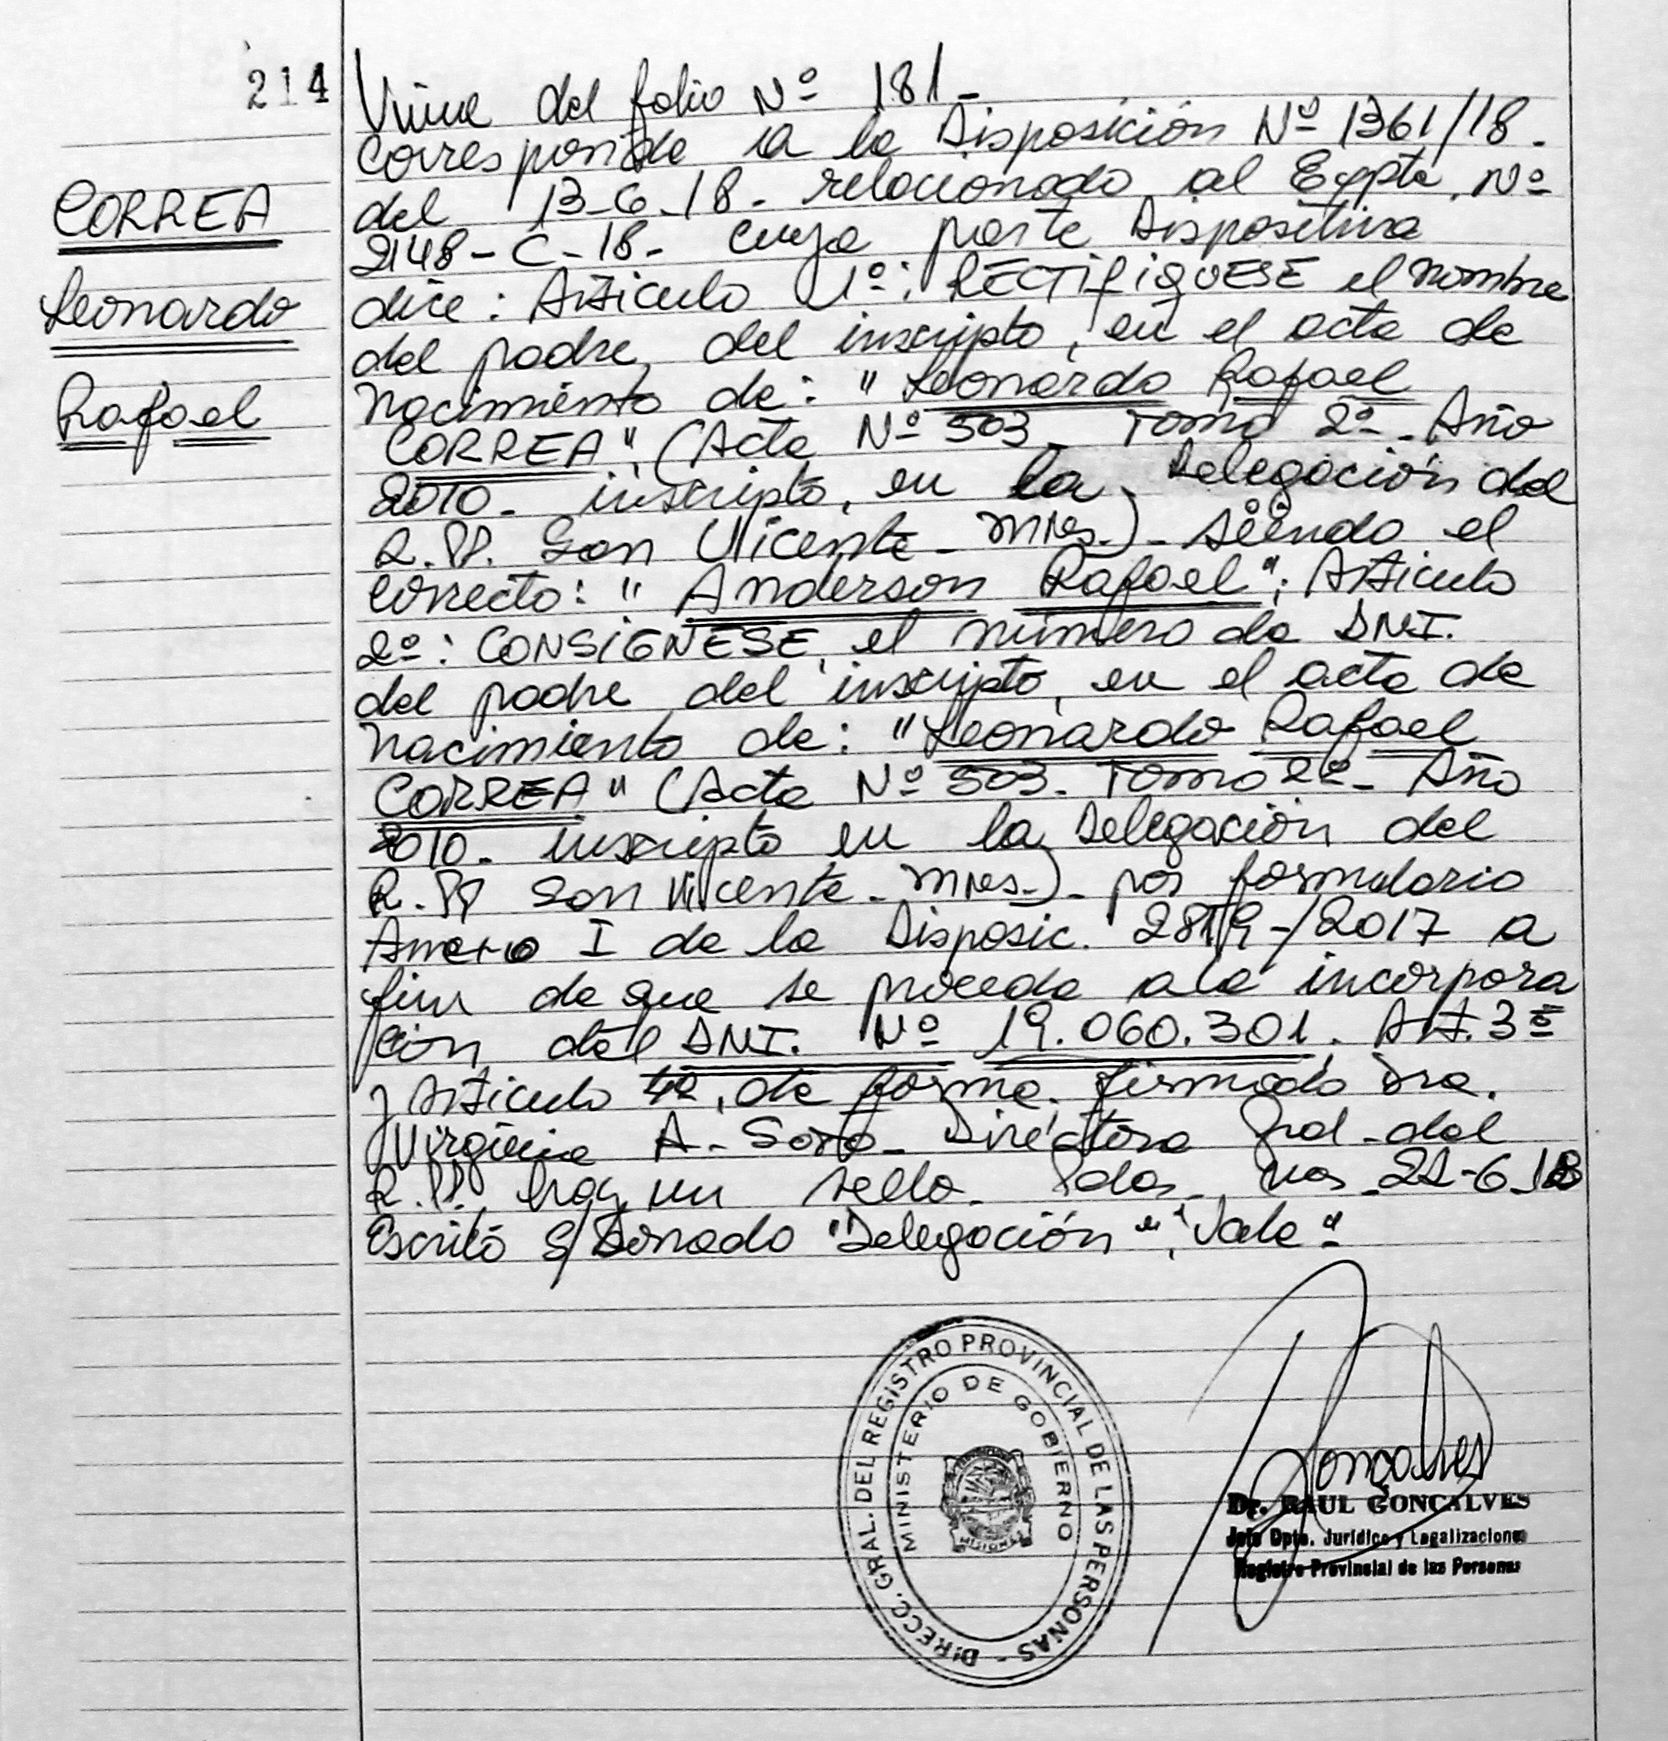 214
CORREA
Leonardo
Rafael
Viene del folio Nº 181-
Corresponde a la Disposición Nº 1361/18-
del 13-6-18- relacionado al Expte. Nº
2148-C-18- cuya parte Dispositiva
dice: Articulo 1º: RECTIFIQUESE el nombre
del padre, del inscripto, en el acta de
Nacimiento de: "Leonardo Rafael
CORREA", (Acta Nº 503 Tomo 2º- Año
2010- inscripto, en la Delegación del
R.PP. San Vicente- Mnes.)- siendo el
correcto: "Anderson Rafael"; Articulo
2º: CONSIGNESE, el número de DNI.
del padre del inscripto, en el acta de
Nacimiento de: "Leonardo Rafael
CORREA" (Acta Nº 503- Tomo 2º- Año
2010- inscripto en la Delegación del
R.PP San Vicente- Mnes.)- por formulario
Anexo I de la Disposic. /2017 a
fin de que se proceda a la incorpora
ción del DNI. Nº 19.060.301. Art. 3º
y Articulo 4º, de forma. firmado Dra.
Virginia A. Soto- Directora Gral- del
R.PP. hay un sello- Pdas- Mnes-21-6-18
Escrito s/borrado "Delegación", "Vale"-
DIRECC. GRAL. DEL REGISTRO PROVINCIAL DE LAS PERSONAS -
MINISTERIO DE GOBIERNO
MISIONES
Gonçalves
Dr. RAUL GONCALVES
Jefe Dpto. Jurídico y Legalizaciones
Registro Provincial de las Personas